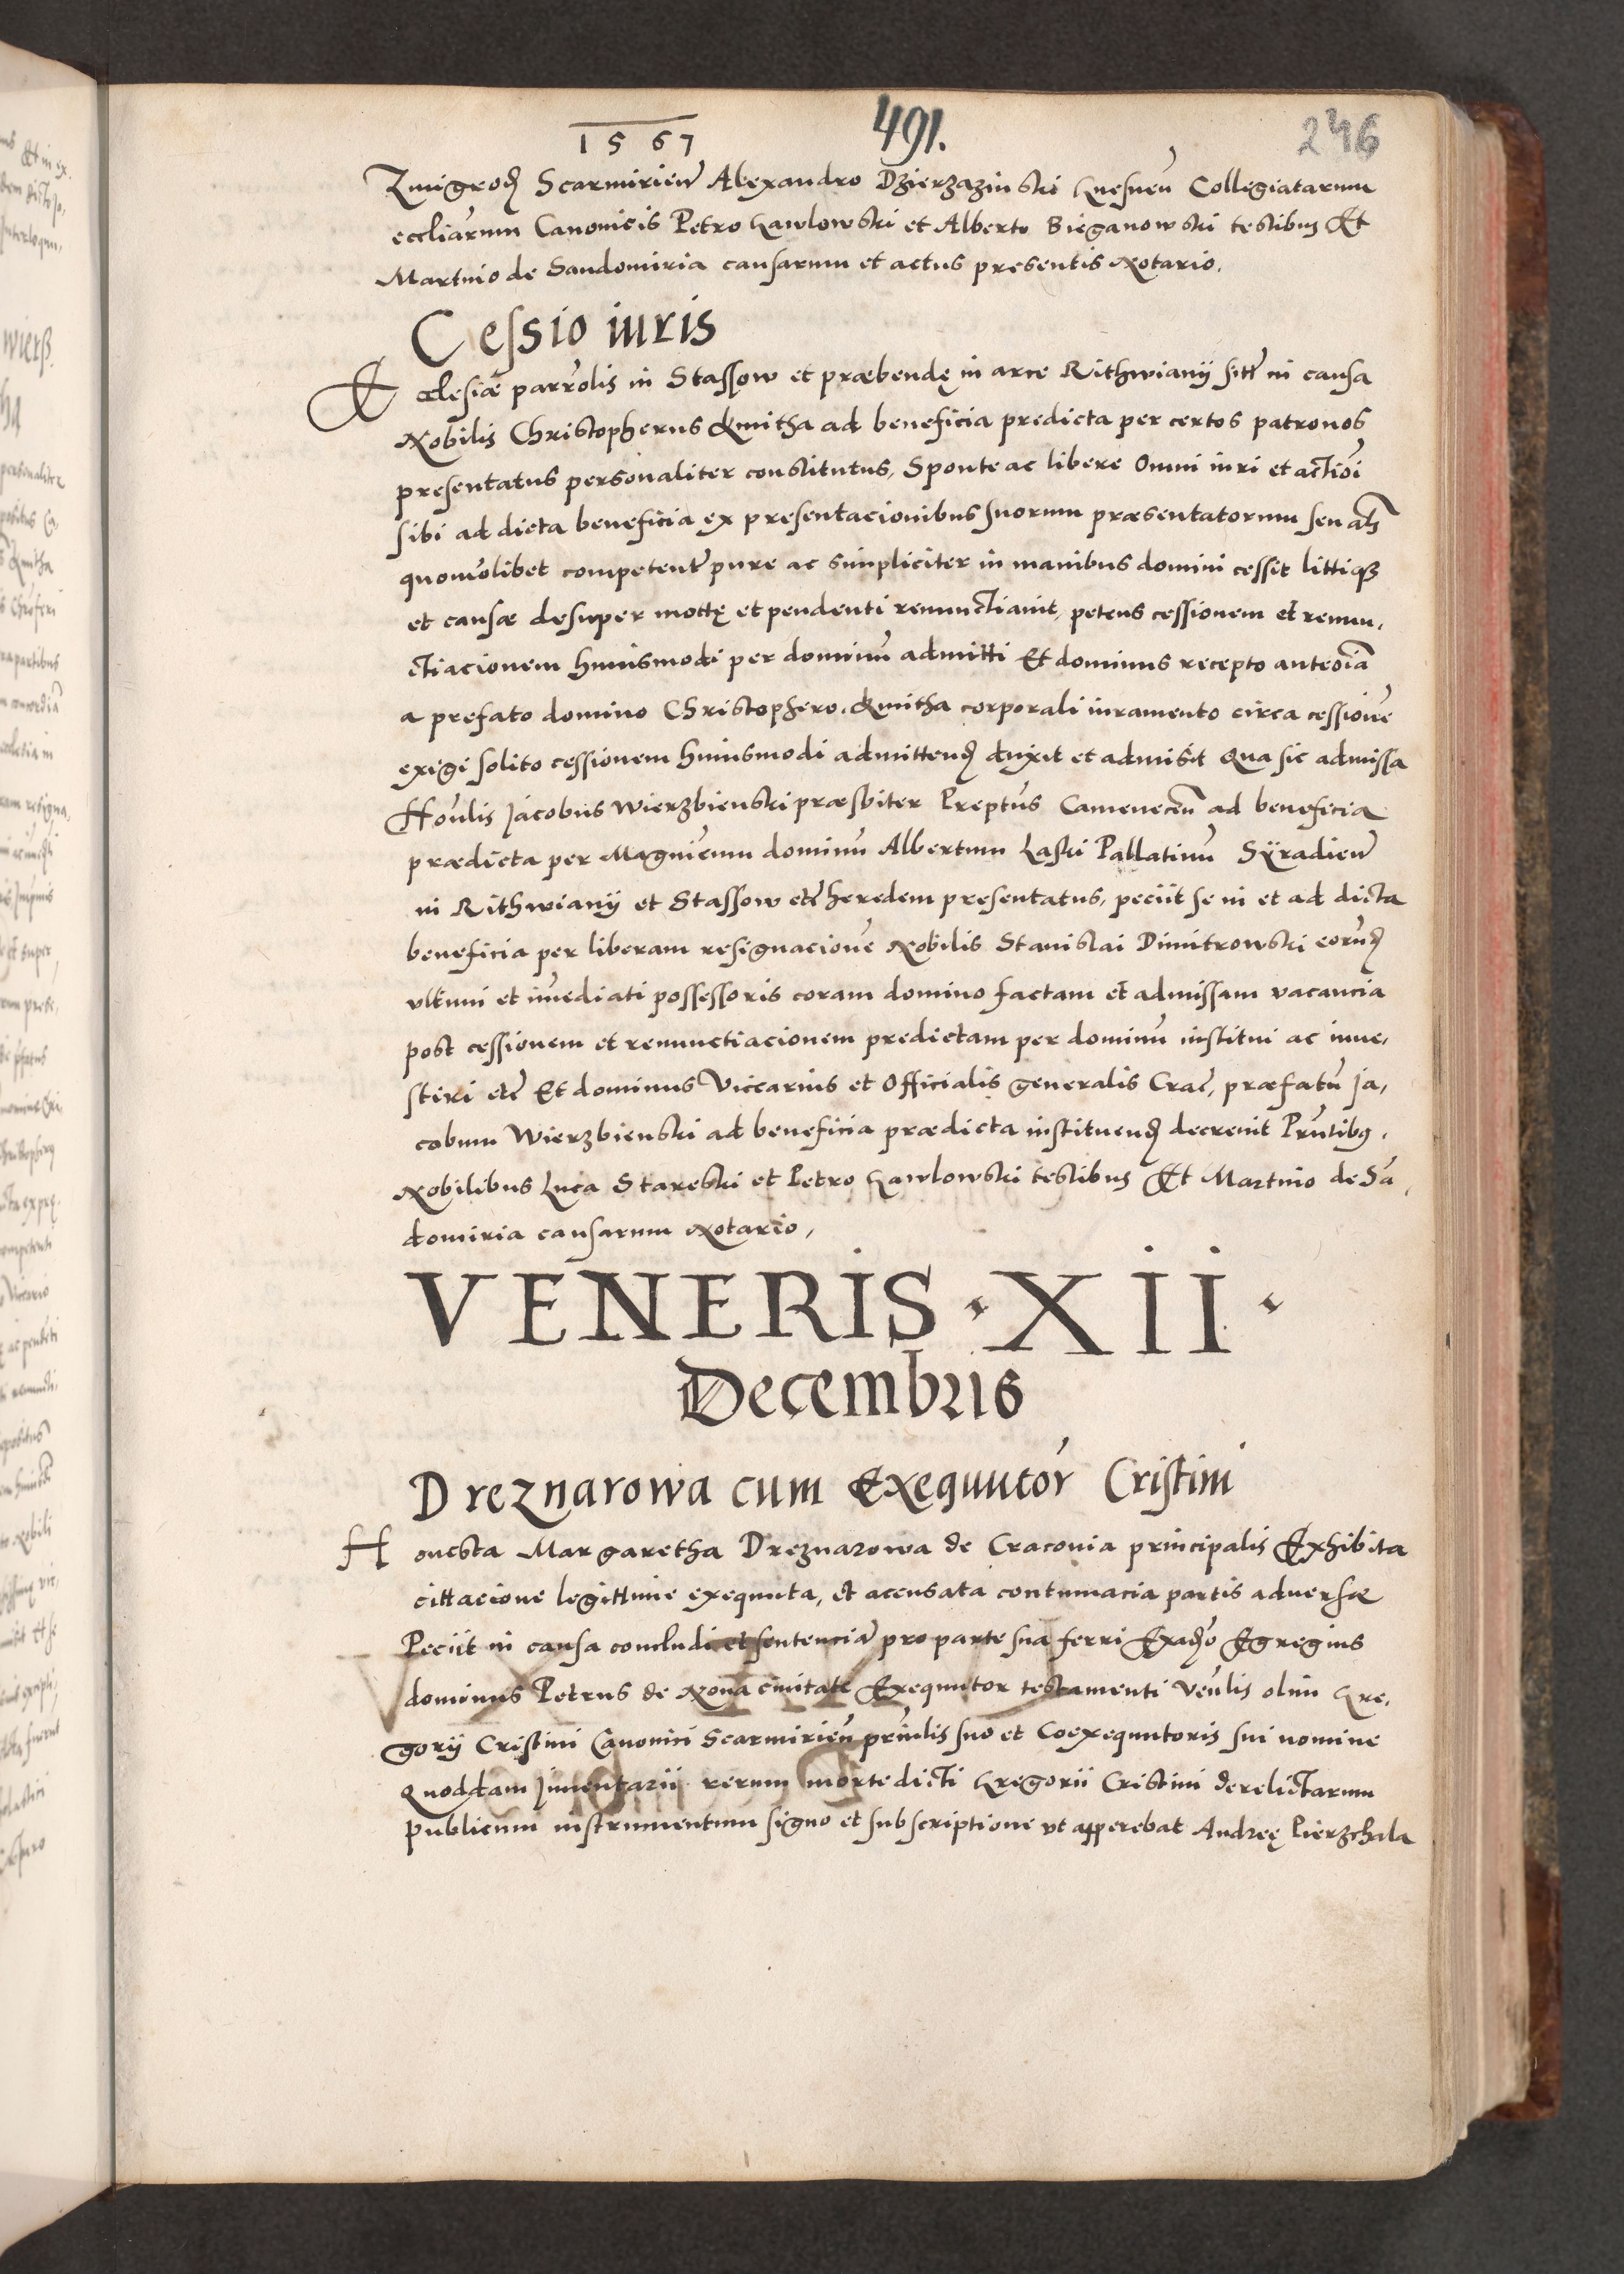 1567
491.
246
Zmigrod Scarmirien Alexandro Dzierzazinski Gnesnen Collegiatarum
eccliarum Canonicis Petro Gawlowski et Alberto Bieganowski testibus Et
Martino de Sandomiria causarum et actus presentis Notario.
Cessio iuris
Ecclesiæ parrolis in Stassow et præbendę in arce Rithwiany sitæ in causa
Nobilis Christopherus Kmitha ad beneficia predicta per certos patronos
presentatus personaliter constitutus, Sponte ac libere Omni iuri et actioi
sibi ad dicta beneficia ex presentacionibus suorum præsentatorum seu als
quomolibet competent pure ac simpliciter in manibus domini cessit littiqz
et causæ desuper mottę et pendenti renunctiauit, petens cessionem et renun,
ctiacionem huiusmodi per dominu admitti Et dominus recepto anteoia
a prefato domino Christophero Kmitha corporali iuramento circa cessione
exigi solito cessionem huiusmodi admittend duxit et admisit Qua sic admissa
Honlis Jacobus Wierzbienski præsbiter Preptus Camenecen ad beneficia
prædicta per Magnicum dominu Albertum Laski Pallatinu Syradien
in Rithwiany et Stassow etc heredem presentatus, peciit se in et ad dicta
beneficia per liberam resignacione Nobilis Stanislai Dimitrowski eorund
ultimi et imediati possessoris coram domino factam et admissam vacancia
post cessionem et renunctiacionem predictam per dominu institui ac inue,
stiri etc Et dominus Viccarius et Officialis generalis Crac, præfatu Ja,
cobum Wierzbienski ad beneficia prædicta instituend decreuit Prntibq,
Nobilibus Luca Stareski et Petro Gawlowski testibus Et Martino de Sa,
domiria causarum Notario,
VENERIS · XII ·
Decembris
Dreznarowa cum Exequutor Cristini
Honesta Margaretha Dreznarowa de Craconia principalis Exhibita
cittacione legittime exequuta, et acensata contumacia partis aduersæ
Peciit in causa concludi et sentencia pro parte sua ferri Exaduo Egregius
dominus Petrus de Noua ciuitate Exequutor testamenti Venlis olim Gre,
gorij Cristini Canonici Scarmirien prinlis suo et Coexequutoris sui nomine
Quoddam Jnuentarii rerum morte dicti Gregorii Cristini derelictarum
publicum instrumentum signo et subscriptione ut apperebat Andreę Pierzchala